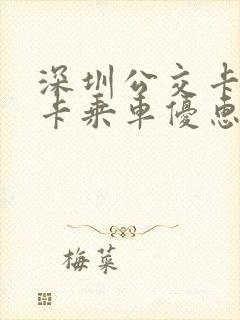 深圳公交卡
卡乘車優惠
梅菜